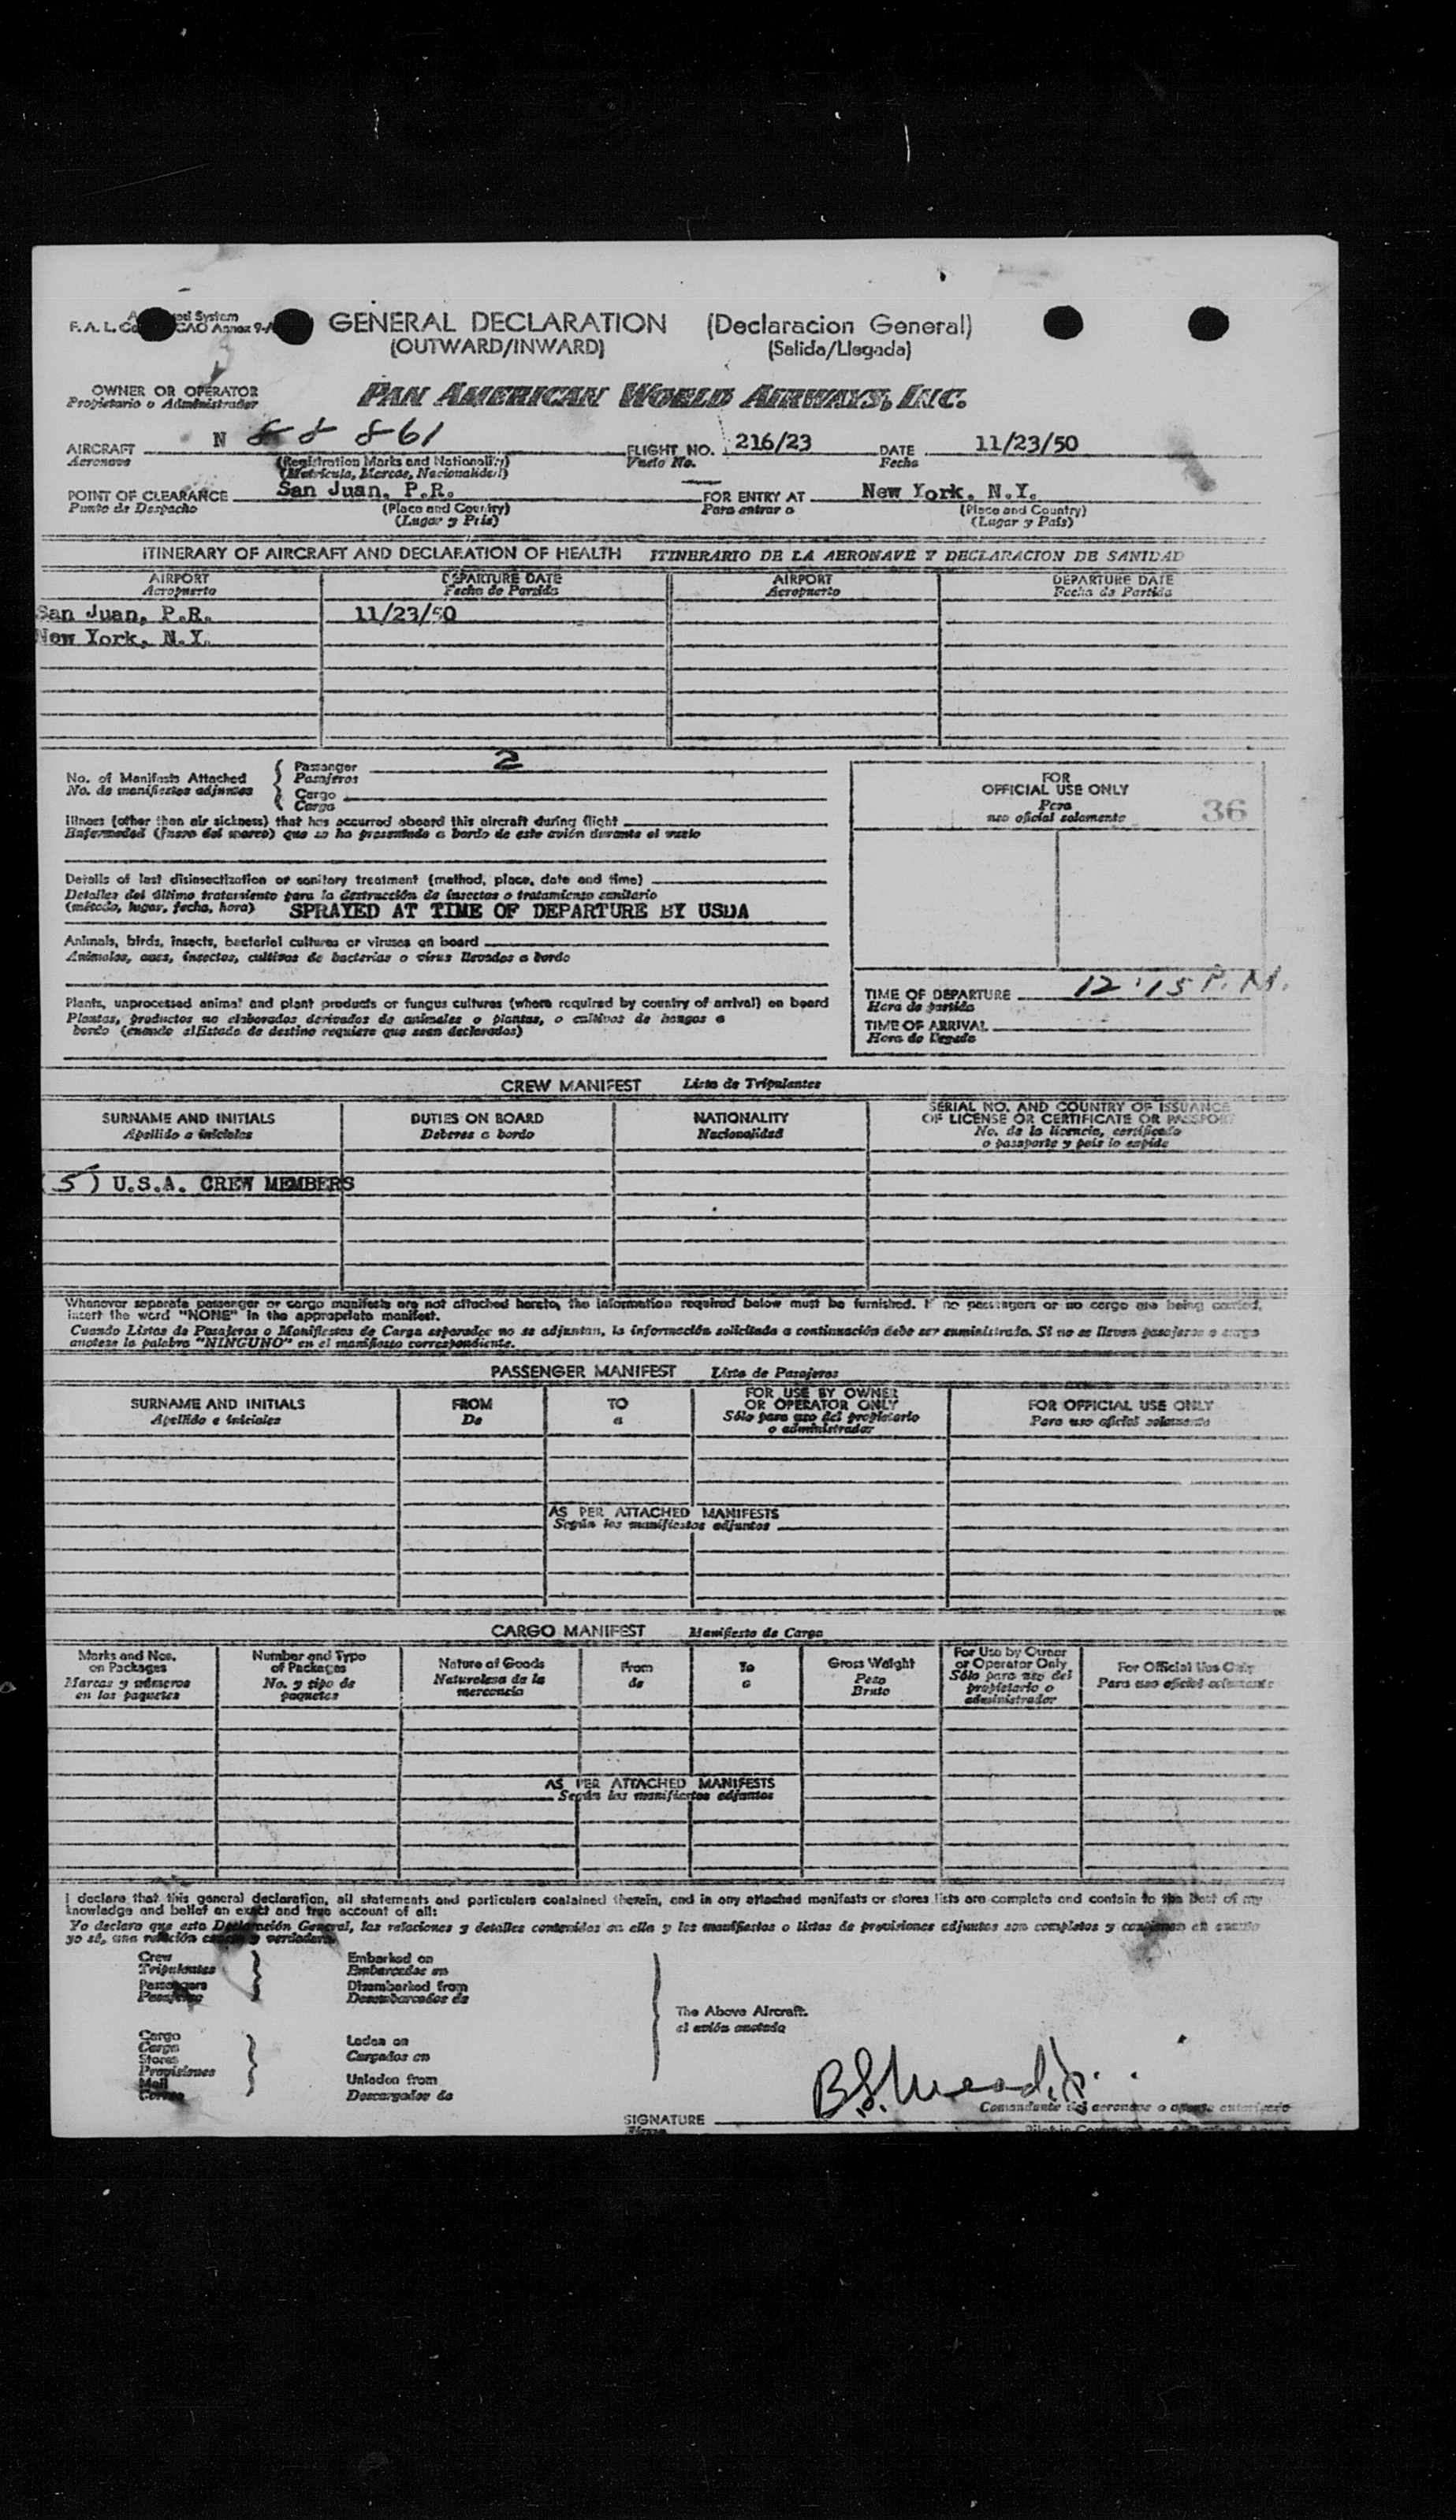 F. A. L. CAO Annex 9-A
GENERAL DECLARATION (Declaracion General)
(OUTWARD/INWARD) (Salida/Llegada)
OWNER OR OPERATOR
Propietario o Administrador
PAN AMERICAN WORLD AIRWAYS, INC.
AIRCRAFT N 88861 FLIGHT NO. 216/23 DATE 11/23/50
Aeronave (Registration Marks and Nationality) Vuelo No. Fecha
(Matricula, Marcas, Nacionalidad)
POINT OF CLEARANCE San Juan, P.R. FOR ENTRY AT New York, N.Y.
Punto de Despacho (Place and Country) Para entrar a (Place and Country)
(Lugar y País) (Lugar y País)
ITINERARY OF AIRCRAFT AND DECLARATION OF HEALTH ITINERARIO DE LA AERONAVE Y DECLARACION DE SANIDAD
AIRPORT DEPARTURE DATE AIRPORT DEPARTURE DATE
Aeropuerto Fecha de Partida Aeropuerto Fecha de Partida
San Juan, P.R. 11/23/50
New York, N.Y.
No. of Manifests Attached
No. de manifiestos adjuntos
Passenger 2
Pasajeros
Cargo
Carga
Illness (other than air sickness) that has occurred aboard this aircraft during flight
Enfermedad (fuera del mareo) que se ha presentado a bordo de este avión durante el vuelo
Details of last disinsectization or sanitary treatment (method, place, date and time)
Detalles del último tratamiento para la destrucción de insectos o tratamiento sanitario
(método, lugar, fecha, hora) SPRAYED AT TIME OF DEPARTURE BY USDA
Animals, birds, insects, bacterial cultures or viruses on board
Animales, aves, insectos, cultivos de bacterias o virus llevados a bordo
Plants, unprocessed animal and plant products or fungus cultures (where required by country of arrival) on board
Plantas, productos no elaborados derivados de animales o plantas, o cultivos de hongos a
bordo (cuando el Estado de destino requiere que sean declarados)
FOR
OFFICIAL USE ONLY
Para
uso oficial solamente
36
TIME OF DEPARTURE 12:15 P.M.
Hora de partida
TIME OF ARRIVAL
Hora de llegada
CREW MANIFEST Lista de Tripulantes
SURNAME AND INITIALS DUTIES ON BOARD NATIONALITY SERIAL NO. AND COUNTRY OF ISSUANCE
OF LICENSE OR CERTIFICATE OR PASSPORT
Apellido e iniciales Deberes a bordo Nacionalidad No. de la licencia, certificado
o pasaporte y país lo expide
(5) U.S.A. CREW MEMBERS
Whenever separate passenger or cargo manifests are not attached hereto, the information required below must be furnished. If no passengers or no cargo are being carried,
insert the word "NONE" in the appropriate manifest.
Cuando Listas de Pasajeros o Manifiestos de Carga separados no se adjuntan, la información solicitada a continuación debe ser suministrada. Si no se llevan pasajeros o carga
anotese la palabra "NINGUNO" en el manifiesto correspondiente.
PASSENGER MANIFEST Lista de Pasajeros
SURNAME AND INITIALS FROM TO FOR USE BY OWNER
OR OPERATOR ONLY FOR OFFICIAL USE ONLY
Apellido e iniciales De a Sólo para uso del propietario
o administrador Para uso oficial solamente
AS PER ATTACHED MANIFESTS
Según los manifiestos adjuntos
CARGO MANIFEST Manifiesto de Carga
Marks and Nos.
on Packages
Marcas y números
en los paquetes
Number and Type
of Packages
No. y tipo de
paquetes
Nature of Goods
Naturaleza de la
mercancia
From
de
To
a
Gross Weight
Peso
Bruto
For Use by Owner
or Operator Only
Sólo para uso del
propietario o
administrador
For Official Use Only
Para uso oficial solamente
AS PER ATTACHED MANIFESTS
Según los manifiestos adjuntos
I declare that this general declaration, all statements and particulars contained therein, and in any attached manifests or stores lists are complete and contain to the best of my
knowledge and belief an exact and true account of all:
Yo declaro que esta Declaración General, las relaciones y detalles contenidos en ella y los manifiestos o listas de provisiones adjuntos son completos y contienen en cuanto
yo sé, una relación exacta y verdadera
Crew
Tripulantes
Passengers
Pasajeros
Embarked on
Embarcados en
Disembarked from
Desembarcados de
Cargo
Carga
Stores
Provisiones
Mail
Correo
Laden on
Cargados en
Unladen from
Descargados de
The Above Aircraft.
el avión anotado
SIGNATURE
Comandante del aeronave o agente autorizado